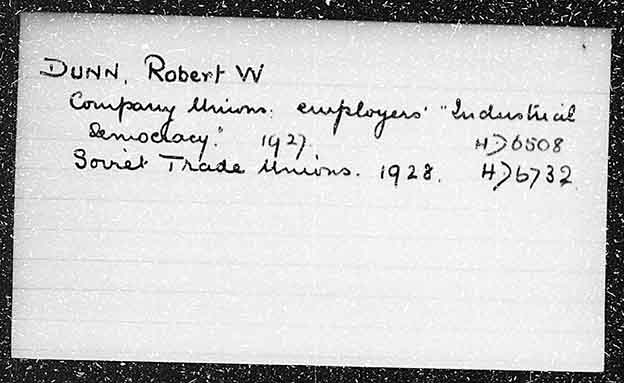 DUNN, Robert W
Company Unions: employers' "Industrial
Democracy." 1927. HD6508
Soviet Trade Unions. 1928. HD6732